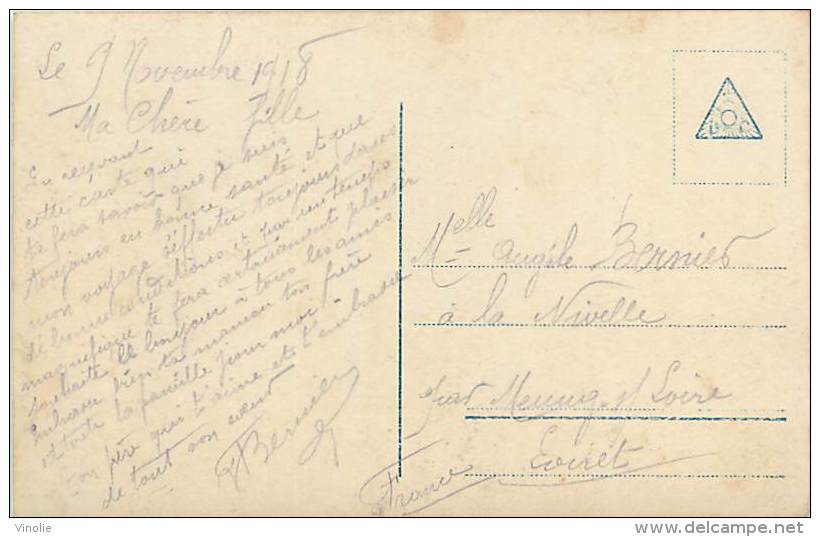 Le 9 Novembre 1918
Ma Chère Fille
En reçevant
cette carte qui
te fera savoir que je suis
toujours en bonne santé et que
mon voyage s'effectu toujour dans
de bonne conditions et par un temps
magnifique te fera certainement plaisir
souhaite le bonjour à tous les amies
Embrasse bien ta maman ton frère
et toute la famille pour moi
Ton père qui t'aime et t'embrasse
de tout son coeur
Bernier
Melle Angèle Bernier
à la Nivelle
par Meung s/ Loire
Loiret
France
Vinolie
delcampe.net